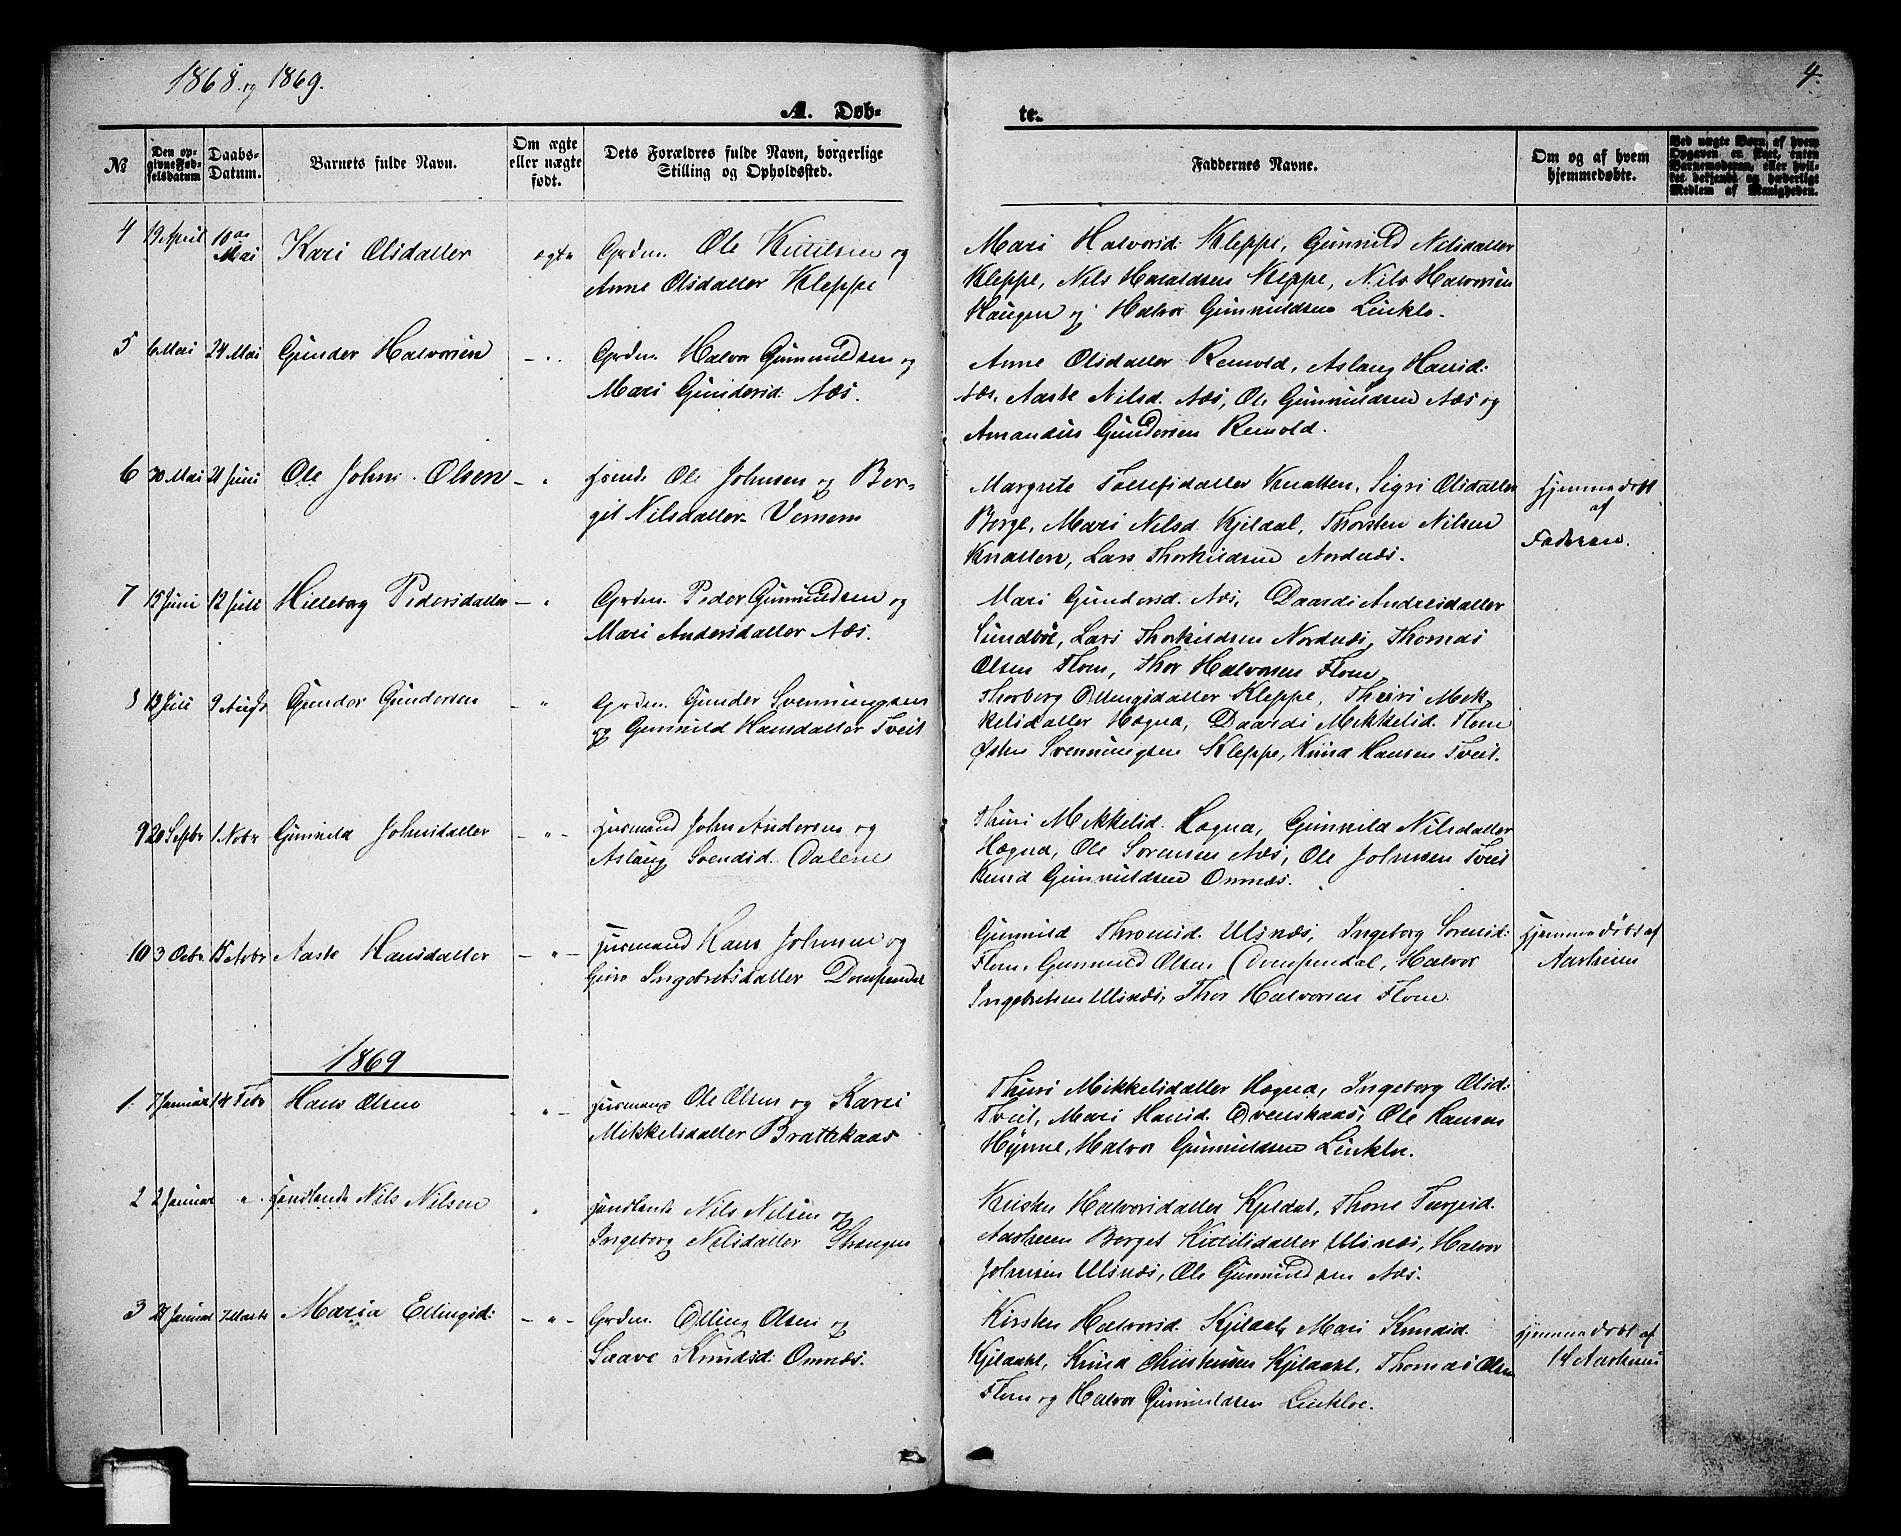 1868 og 1869.
4.
A. Døb-
te.
№
Den op-
givne Fød-
selsdatum
Daabs-
Datum.
Barnets fulde Navn.
Om ægte
eller uægte
født.
Dets Forældres fulde Navn, borgerlige
Stilling og Opholdssted.
Faddernes Navne.
Om og af hvem
hjemmedøbte.
Ved uægte Børn, af hvem
Opgaven er skeet, enten
Barnemoderen, eller hvil-
ket bekjendt og hæderligt
Medlem af Menigheden.
4 19 April 10de Mai Kari Olsdatter ægte Grdm. Ole Kittilsen og
Anne Olsdatter Kleppe
Mari Halvorsd: Kleppe, Gunnild Nilsdatter
Kleppe, Nils Haraldsen Kleppe, Nils Halvorsen
Haugen og Halvor Gunnuldsen Linklo.
5 6 Mai 24 Mai Gunder Halvorsen - " Grdm. Halvor Gunnuldsen og
Mari Gundersd: Næs.
Anne Olsdatter Remold, Aslaug Hansd:
Næs, Aaste Nilsd. Næs, Ole Gunnuldsen Næs og
Amandus Gundersen Remold.
6 30 Mai 21 Juni Ole Johns. Olsen - " Ole Johnsen og Ber-
git Nilsdatter Vemem
Margrete Tollefsdatter Knatten, Sigri Olsdatter
Borge, Mari Nilsd Kjildal, Thorsten Nilsen
Knatten, Lars Thorkildsen Nordnæs.
Hjemmedøbt
af
Faderen.
7 15 Juni 12 Juli Hilleborg Pedersdatter - " Grdm. Peder Gunnuldsen og
Mari Andersdatter Næs.
Mari Gundersd. Næs, Daardi Andresdatter
Sundbøe, Lars Thorkildsen Nordnæs, Thomas
Olsen Flom, Thor Halvorsen Flom,
8 12 Juli 9 Augst Gunder Gundersen - " Grdm. Gunder Svenningsen
og Gunnild Hansdatter Tveit
Thorberg Ellingsdatter Kleppe, Thuri Mek-
kelsdatter Høgna, Daardi Mekkelsd. Flom
Østen Svenningsen Kleppe, Knud Hansen Tveit.
9 20 Septbr 1 Nobr Gunnild Johnsdatter - " - Husmand John Andersen og
Aslaug Svendsd. Dalene
Thuri Mekkelsd. Høgna, Gunnild Nilsdatter
Høgna, Ole Sørensen Næs, Ole Johnsen Tveit
Knud Gunnuldsen Omnæs.
10 3 Octbr 15 Novbr Aaste Hansdatter - " - Husmand Hans Johnsen og
Guro Ingebretsdatter Dompendal
Gunnild Thronsd. Ulsnæs, Ingeborg Sørensd:
Flom, Gunnuld Olsen Dompendal, Halvor
Ingebretsen Ulsnæs, Thor Halvorsen Flom.
Hjemmedøbt af
Aasheim
1869
1. 7 Januar 14 Febr Hans Olsen - " - Husmand Ole Olsen og Kari
Mikkelsdatter Brattekaas
Thuri Mikkelsdatter Høgna, Ingeborg Olsd:
Tveit, Mari Hansd. Qvenskaas, Ole Hansen
Hynne, Halvor Gunnuldsen Linkloe.
2 2 Januar " Nils Nilsen " Nils Nilsen og
Ingeborg Nilsdatter Strangen
Kirsten Halvorsdatter Kjeldal, Thone Turgeisd.
Aasheim Borget Kittilsdatter Ulsnæs, Halvor
Johnsen Ulsnæs, Ole Gunnuldsen Næs.
3 27 Januar 7 Marts Maria Ellingsd: - " - Grdm. Elling Olsen og
Saave Knudsd: Omnæs.
Kirsten Halvorsd. Kjildahl, Mari Knudsd.
Kjildahl, Knud Christensen Kjildahl, Thomas Olsen
Flom og Halvor Gunnuldsen Linkloe.
Hjemmedøbt af
Aasheim